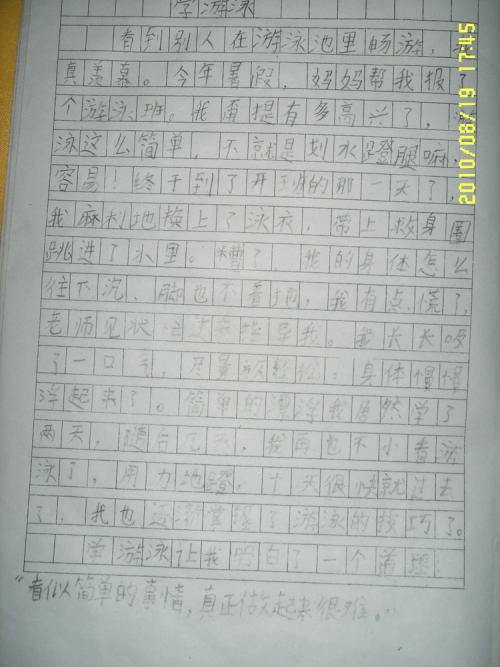 学游泳
看到别人在游泳池里畅游,我
真羡慕。今年暑假,妈妈帮我报了
个游泳班。我甭提有多高兴了,游
泳这么简单,不就是划水蹬腿嘛,
容易!终于到了开班的那一天了,
我麻利地换上了泳衣,带上救身圈
跳进了水里。糟了,我的身体怎么
往下沉,脚也不着地,我有点慌了,
老师见状,过来指导我。我长长吸
了一口气,尽量放轻松,身体慢慢
浮起来了。简单的漂浮我居然学了
两天,随后几天,我再也不小看游
泳了,用力地蹬,十天很快就过去
了,我也逐渐掌握了游泳的技巧了。
学游泳让我明白了一个道理
"看似简单的事情,真正做起来很难。"
2010/08/19 17:45